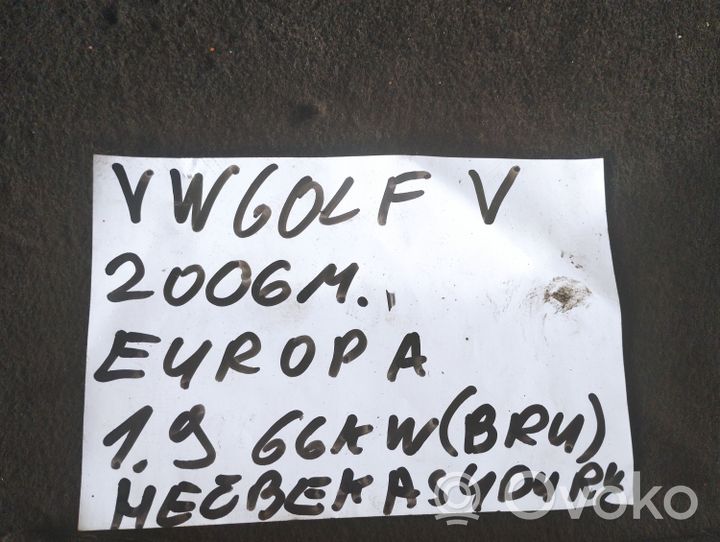 VW GOLF V
2006M.
EUROPA
1.9 66KW(BRU)
HEČBEKAS 4 DURK
Ovoko